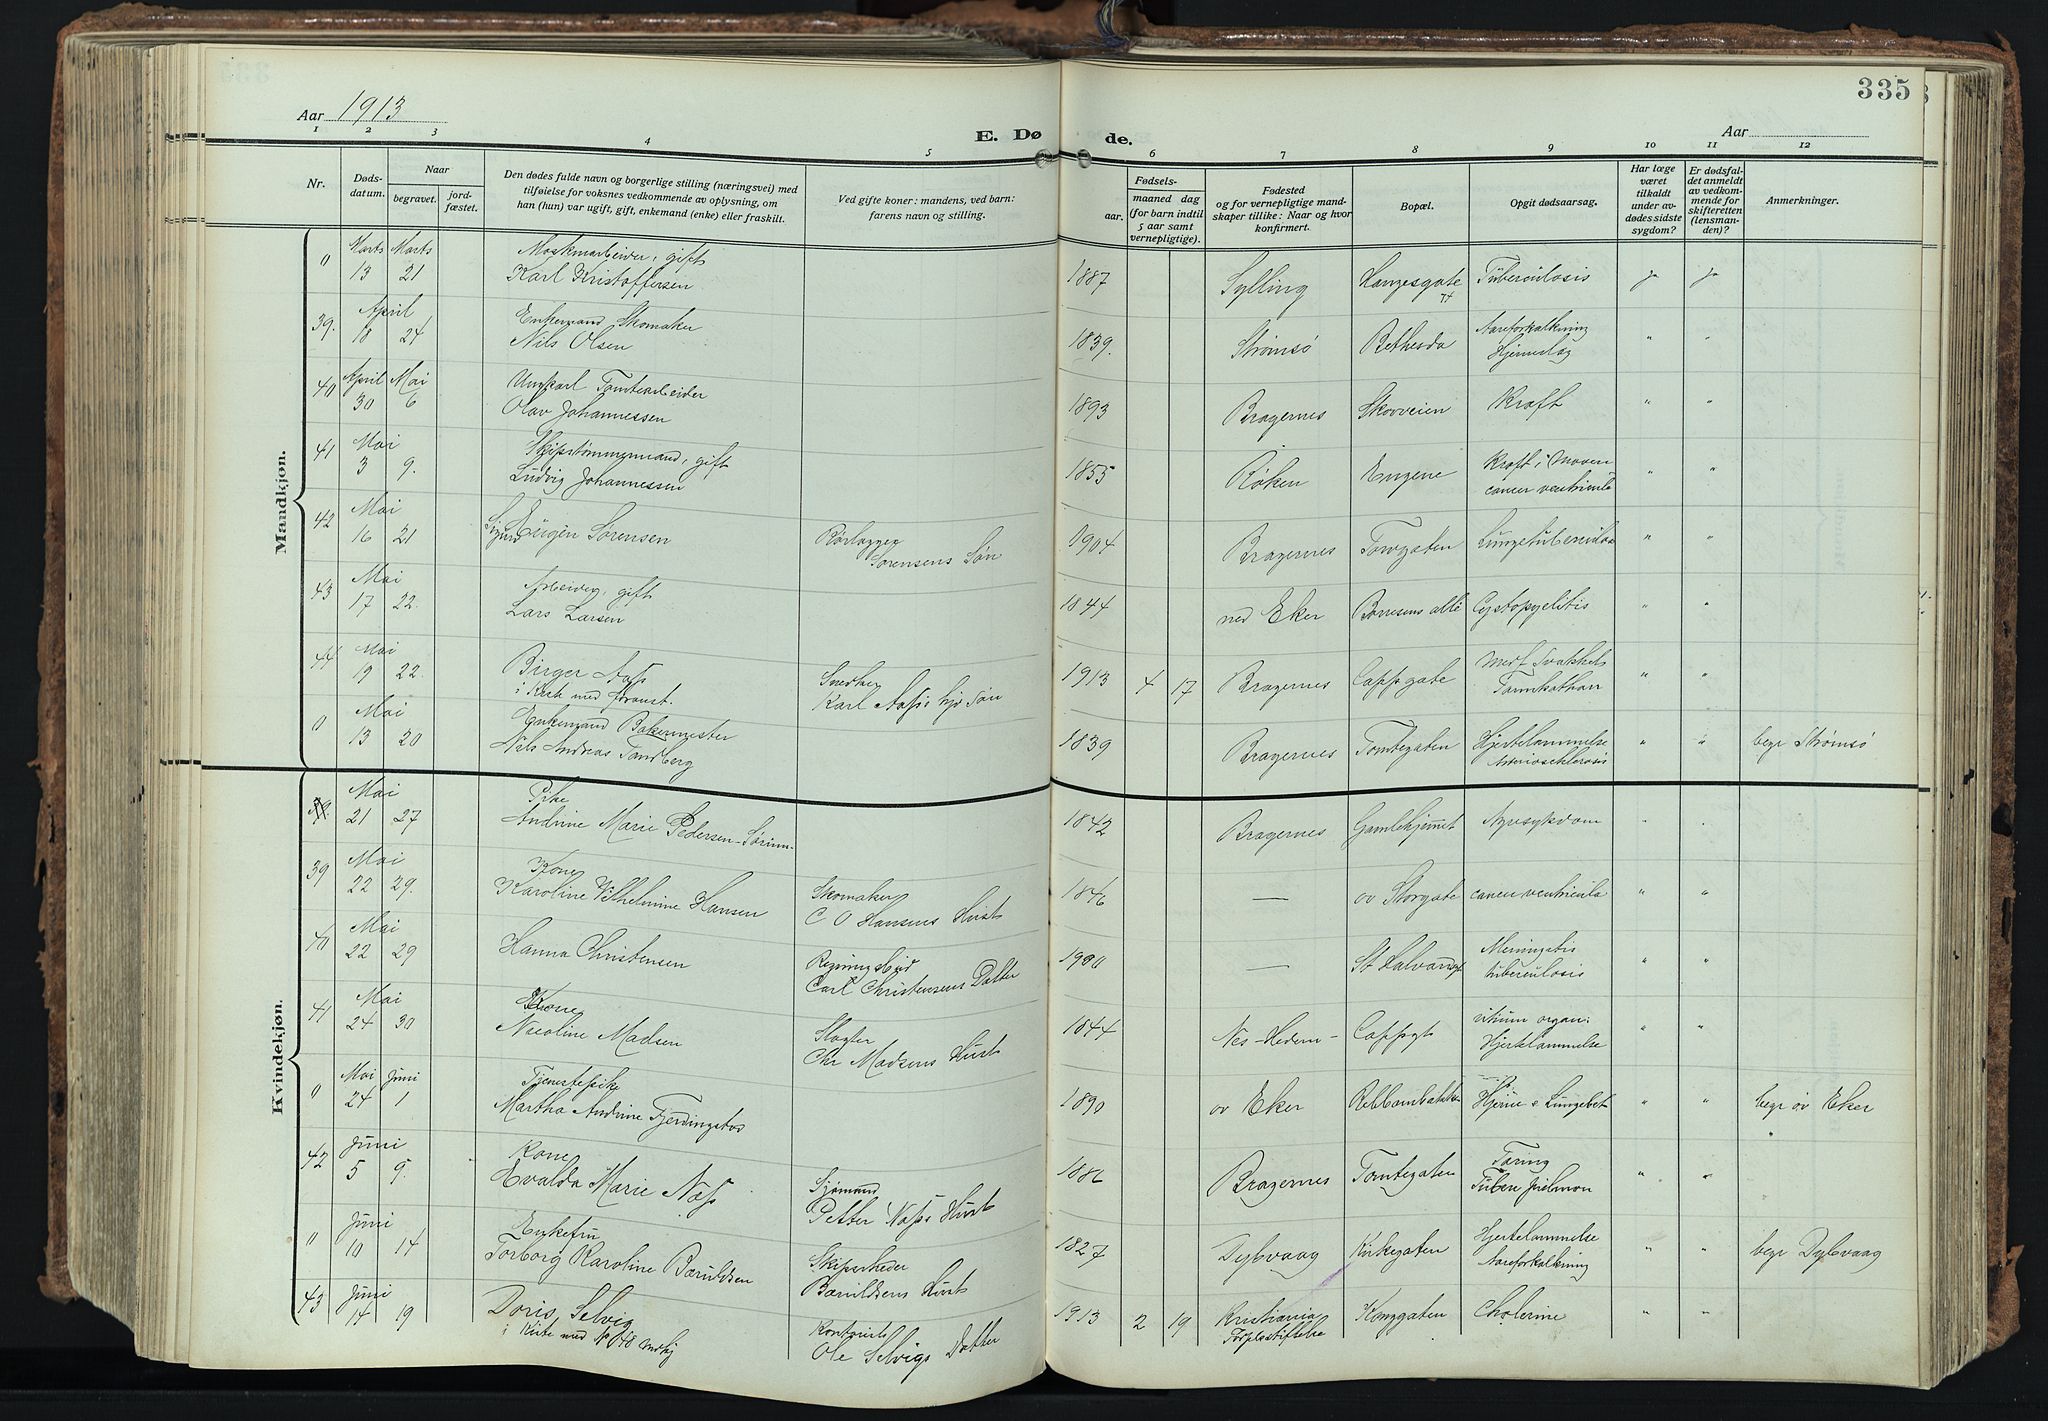 335
Aar 1913
E. Dø de.
Aar
1 2 3 4 5 6 7 8 9 10 11 12
Nr.
Døds-
datum.
Naar
begravet.
jord-
fæstet.
Den dødes fulde navn og borgerlige stilling (næringsvei) med
tilføielse for voksnes vedkommende av oplysning, om
han (hun) var ugift, gift, enkemand (enke) eller fraskilt.
Ved gifte koner: mandens, ved barn:
farens navn og stilling.
Fødsels-
aar. maaned dag
(for barn indtil
5 aar samt
vernepligtige).
Fødested
og for vernepligtige mand-
skaper tillike: Naar og hvor
konfirmert.
Bopæl.
Opgit dødsaarsag.
Har læge
været
tilkaldt
under av-
dødes sidste
sygdom?
Er dødsfal-
det anmeldt
av vedkom-
mende for
skifteretten
(lensman-
den)?
Anmerkninger.
Mandkjøn.
0 Marts Marts Maskinarbeider, gift
13 21 Karl Kristoffersen 1887 Sylling Haugesgate 74 Tuberculosis ja ja
39. April Enkemand Skomaker
18 24 Nils Olsen 1839. Strømsø Bethesda Aareforkalkning
Hjerneslag " "
40 April Mai Ungkarl Tomtearbeider
30 6 Olav Johannessen 1893 Bragernes Skovveien Kræft " "
41 Mai Skipstømmermand, gift
3 9. Ludvig Johannessen 1855 Røken Engene Kræft i Maven
cancer ventriculi " "
42 Mai
16 21 Sigurd Eugen Sørensen Rørlægger
Sørensens Søn 1904 Bragernes Torvgaten Lungetuberculose " "
43 Mai Arbeider, gift
17 22. Lars Larsen 1844 ned Eker Børresens allé Cystopyelitis " "
44 Mai
19 22. Birger Næss
i Kiste med foranst. Snedker
Karl Næss's Søn 1913 4 17 Bragernes Cappgate Medf Svakhet
" "
0 Mai Enkemand Bakermester
13 20 Nils Andreas Tandberg 1839 Bragernes Tomtegaten Hjertelammelse
Arteriosclerosis " " begr Strømsø
Kvindekjøn.
Mai Pike
21 27 Andrine Marie Pedersen-Sørum 1842 Bragernes Gamlehjemet Nyresykdom " "
39 Mai Kone
22 29. Karoline Vilhelmine Hansen Skomaker
C O Hansens Hust 1846 — øv Storgate cancer ventricula " "
40 Mai
22 29 Hanna Christensen
Carl Christensens Datter 1900 — St Halvardsgt Meningitis
tuberculosis " "
41 Mai Kone
24 30 Nicoline Madsen Slagter
Chr Madsens Hust 1844 Nes-Hedem- Cappgt vitium organ:
Hjertelammelse " "
0 Mai Juni Tjenestepike
24 1 Martha Andrine Fjerdingstad 1890 øv Eker Rebbanbakken Hjerne & Lungebet " " begr øv Eker
42 Juni Kone
5 9. Evalda Marie Næss Sjømand
Petter Næss's Hust 1886 Bragernes Tomtegaten Tæring
Tuberc pulmon " "
0 Juni Enkefru
10 14 Torborg Karoline Baruldsen Skipsrheder
Baruldsens Hust 1827 Dybvaag Kirkegaten Hjertelammelse
Aareforkalkning " " begr Dybvaag
43 Juni
14 19 Doris Selvig
i Kiste med No 48 mdkj Kontorist
Ole Selvigs Datter 1913 2 19 Kristiania
Fødselsstiftelse Konggaten Cholerine " "